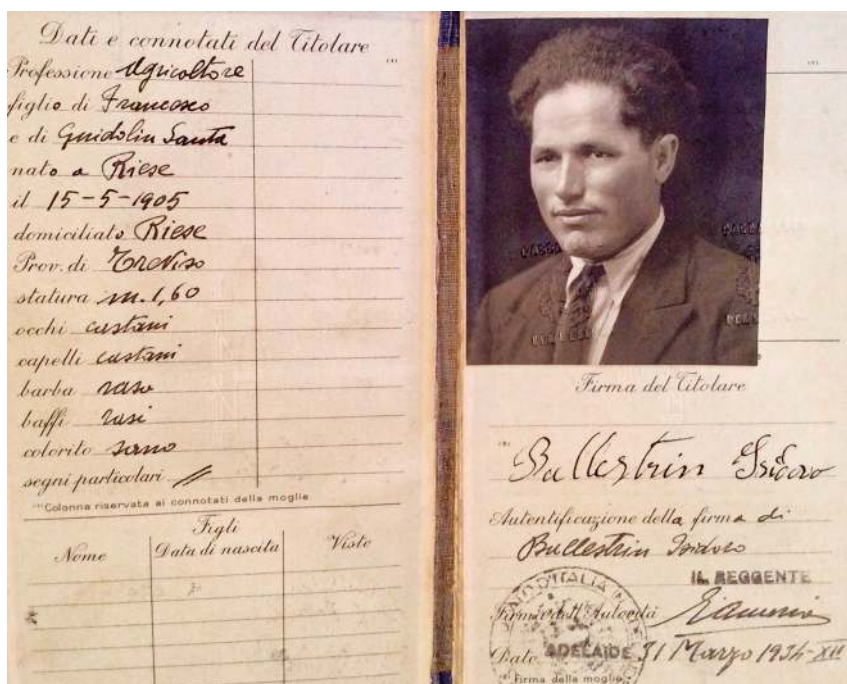 Dati e connotati del Titolare
Professione Agricoltore
figlio di Francesco
e di Guidolin Santa
nato a Riese
il 15-5-1905
domiciliato Riese
Prov. di Treviso
statura m. 1,60
occhi castani
capelli castani
barba rasa
baffi rasi
colorito sano
segni particolari //
Colonna riservata ai connotati della moglie
Figli
Nome
Data di nascita
Visto
Firma del Titolare
Ballestrin Isidoro
Autentificazione della firma di
Ballestrin Isidoro
IL REGGENTE
Firma dell'Autorità
Dato ADELAIDE 31 Marzo 1934-XII
Firma della moglie